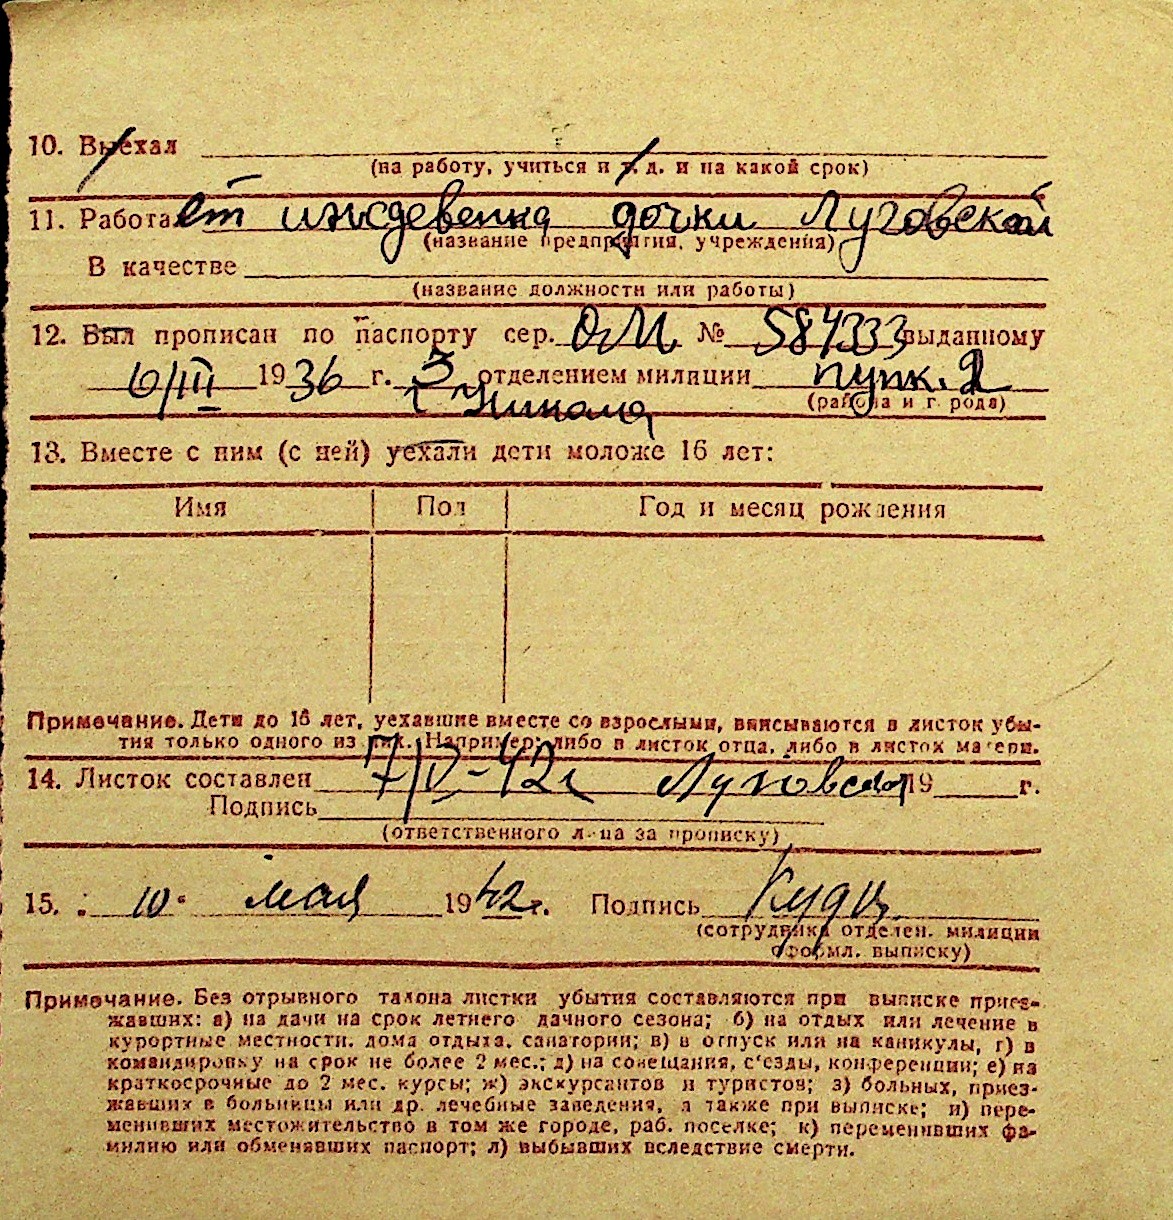 10. Выехал
(на работу, учиться и т. д. и на какой срок)
11. Работает иждевенка дочки Луговской
(название предприятия, учреждения)
В качестве
(название должности или работы)
12. Был прописан по паспорту сер. № 584333 выданному
6/III 1936 г. 3 отделением милиции пупк. 2
(района и города)
13. Вместе с ним (с ней) уехали дети моложе 16 лет:
Имя Пол Год и месяц рождения
Примечание. Дети до 16 лет, уехавшие вместе со взрослыми, вписываются в листок убы-
тия только одного из них. Например: либо в листок отца, либо в листок матери.
14. Листок составлен 7/V-42г Луговская 19 г.
Подпись
(ответственного лица за прописку)
15. 10 мая 1942г. Подпись
(сотрудника отделен. милиции
оформл. выписку)
Примечание. Без отрывного талона листки убытия составляются при выписке приез-
жавших: а) на дачи на срок летнего дачного сезона; б) на отдых или лечение в
курортные местности, дома отдыха, санатории; в) в отпуск или на каникулы, г) в
командировку на срок не более 2 мес.; д) на совещания, с'езды, конференции; е) на
краткосрочные до 2 мес. курсы; ж) экскурсантов и туристов; з) больных, приез-
жавших в больницы или др. лечебные заведения, а также при выписке; и) пере-
менивших местожительство в том же городе, раб. поселке; к) переменивших фа-
милию или обменявших паспорт; л) выбывших вследствие смерти.